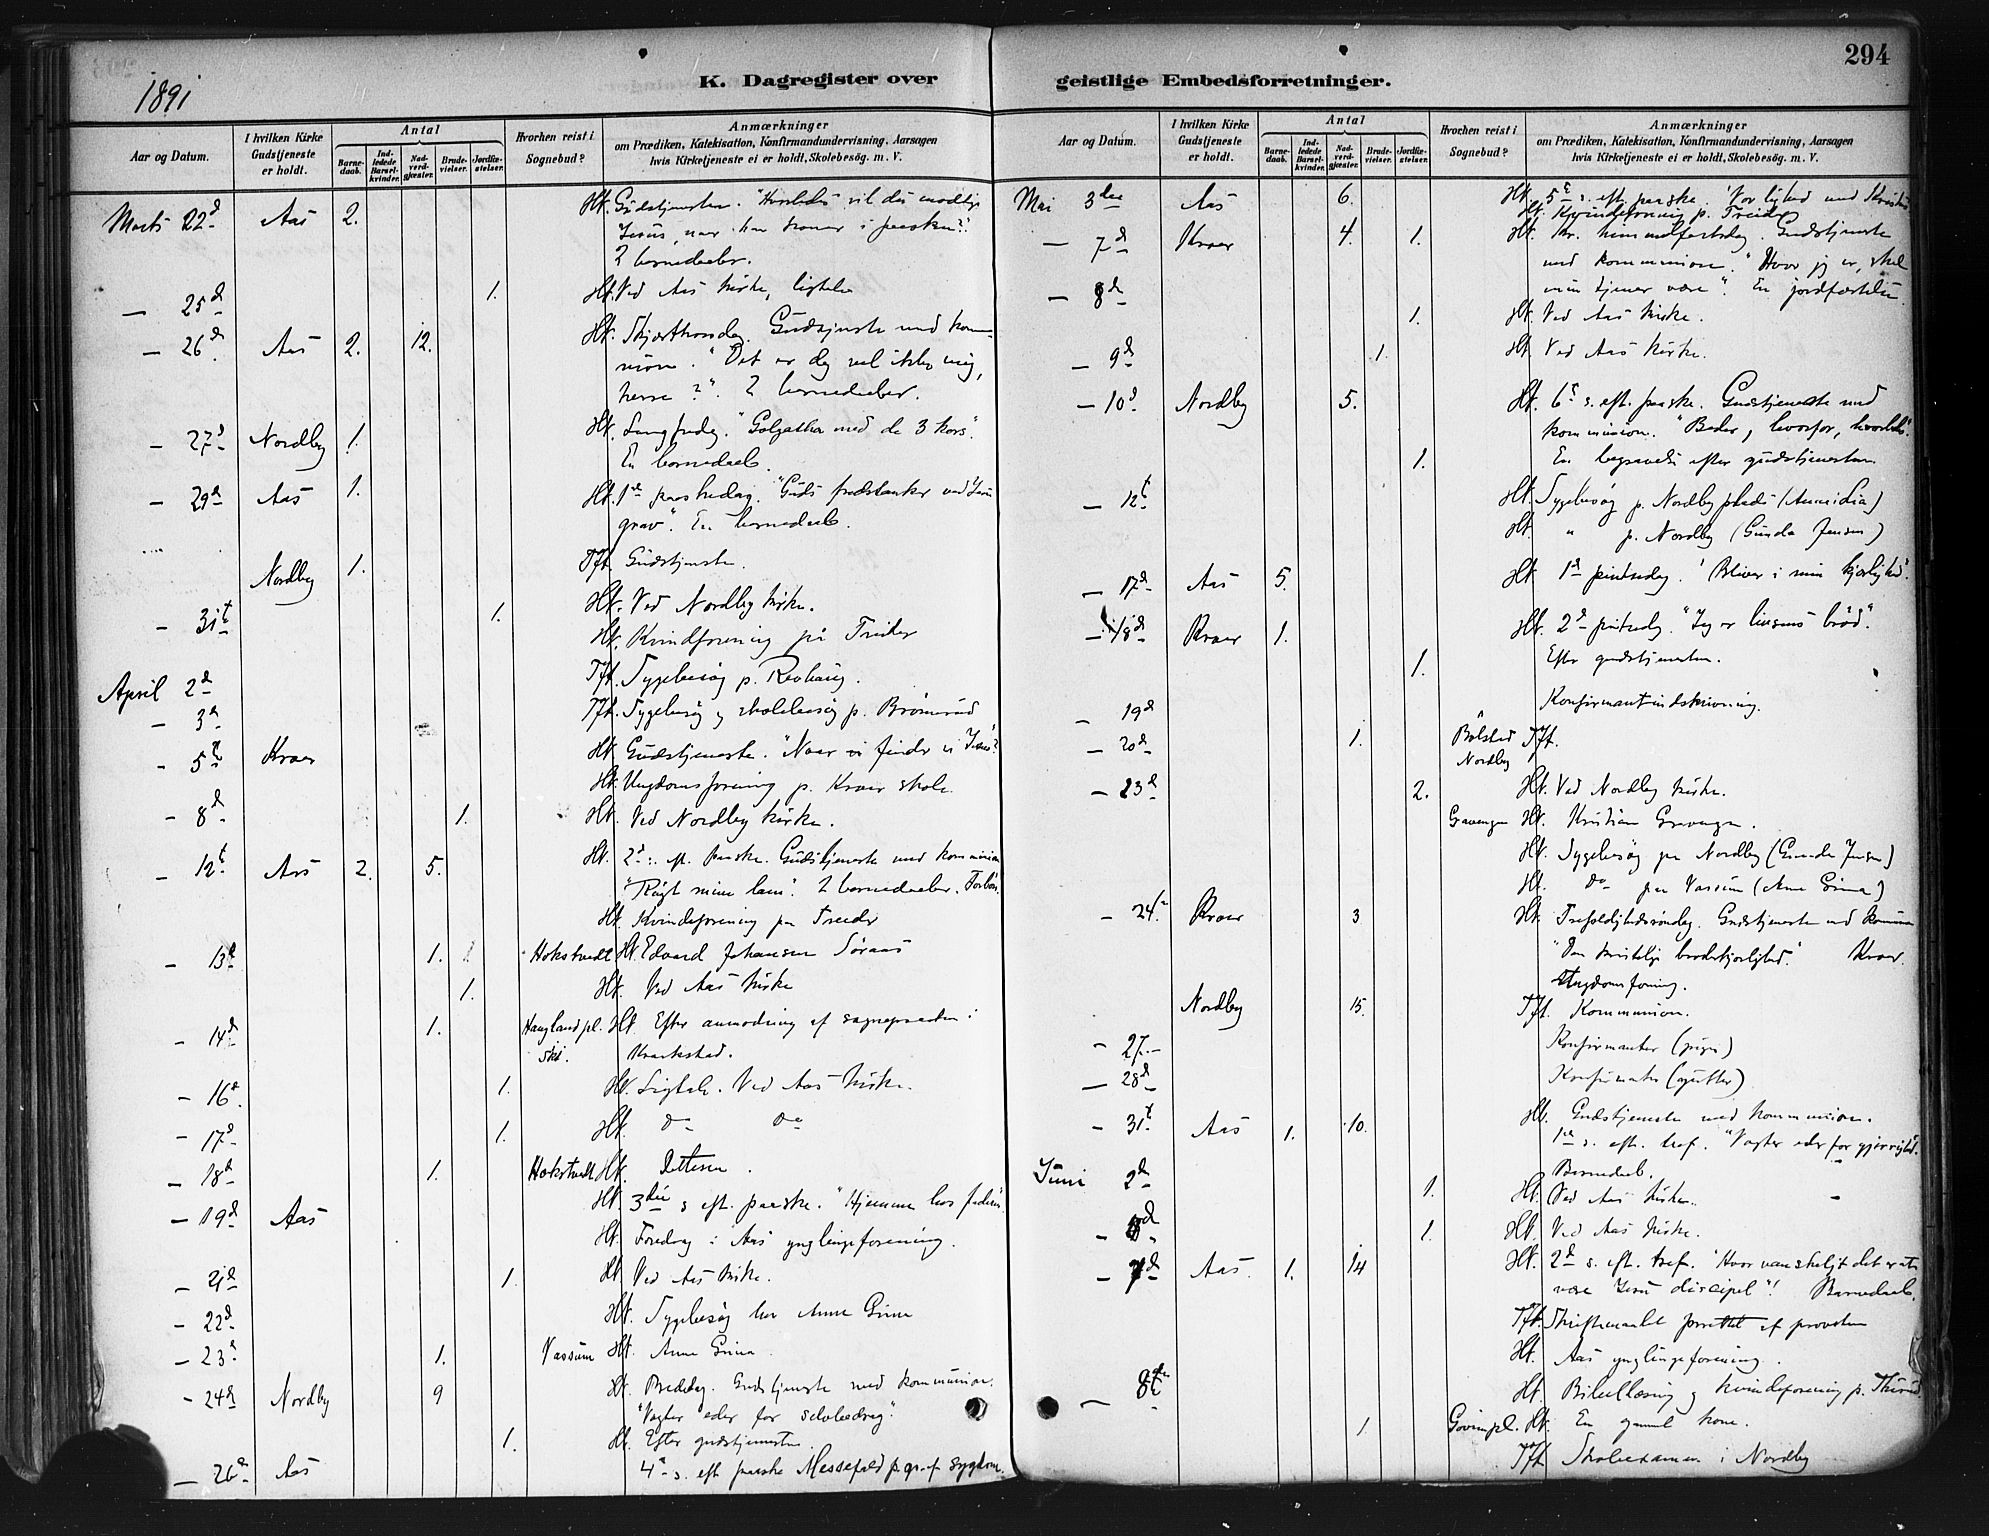 294
1891
K. Dagregister over
geistlige Embedsforretninger.
Aar og Datum.
I hvilken Kirke Gudstjeneste er holdt.
Antal
Barnedaab.
Indledede Barselkvinder.
Nadverdgjester.
Brudevielser.
Jordfæstelser.
Hvorhen reist i Sognebud?
Anmærkninger
om Prædiken, Katekisation, Konfirmandundervisning, Aarsagen
hvis Kirketjeneste ei er holdt, Skolebesög. m. V.
Marts 22d Aas 2. Ht. Gudstjenesten. "Hvorledes vil du modtage
Jesus, naar han kommer i paasken?"
2 barnedaaber.
— 25d 1. Ht. Ved Aas kirke, ligtale
— 26d Aas 2. 12. Ht. Skjærthorsdag. Gudstjeneste med kom-
munion. "Det er dog vel ikke mig,
herre?". 2 barnedaaber.
— 27d Nordby 1. Ht. Langfredag. "Golgatha med de 3 kors".
En barnedaab.
— 29d Aas 1. Ht. 1ste paaskedag. "Guds fredstanker ved Jesu
grav". En barnedaab.
Nordby 1. Tft. Gudstjeneste.
- 31t 1. Ht. Ved Nordby kirke.
Ht. Kvindeforening på Treider
April 2d Tft. Sygebesøg p. Revhaug.
— 3d Tft. Sygebesøg og skolebesøg p. Brønnerud
- 5t Kroer Ht. Gudstjeneste. "Naar vi finder vi Jesus?"
Ht. Ungdomsforening p. Kroer skole.
- 8d 1. Ht. Ved Nordby kirke.
- 12t Aas 2. 5. Ht. 2d s. eft. paaske. Gudstjeneste med kommunion
"Røgt mine lam". 2 barnedaaber. Forbøn.
Ht. Kvindeforening paa Treider
- 13d 1. Hokstvedt Ht. Edvard Johansen Søraas
1. Ht. Ved Aas kirke
- 14d 1. Haugland pl. Ski. Ht. Efter anmodning af sognepresten i
Kraakstad.
- 16d 1. Ht. Ligtale. Ved Aas kirke.
- 17d 1. Ht. Do Do
- 18d 1. Hokstvedt Ht. Dettesen.
- 19d Aas Ht. 3die s. eft. paaske. "Hjemme hos faderen"
Ht. Foredrag i Aas ynglingeforening.
- 21d 1. Ht. Ved Aas kirke.
- 22d Ht. Sygebesøg hos Anne Grina
- 23d 1. Vassum Ht. Anne Grina
- 24d Nordby 9 Ht. Bededag. Gudstjeneste med kommunion.
"Vogter eder for selvbedrag".
1. Ht. Efter gudstjenesten
- 26d Aas 4de s. eft. paaske Messefald p. gr. af sygdom.
Aar og Datum.
I hvilken Kirke Gudstjeneste er holdt.
Antal
Barnedaab.
Indledede Barselkvinder.
Nadverdgjester.
Brudevielser.
Jordfæstelser.
Hvorhen reist i Sognebud?
Anmærkninger
om Prædiken, Katekisation, Konfirmandundervisning, Aarsagen
hvis Kirketjeneste ei er holdt, Skolebesög. m. V.
Mai 3die Aas 6. Ht. 5te s. eft. paaske. "Vor lighed med Kristus"
Ht. Kvindeforening p. Treider
— 7d Kroer 4. 1. Ht. Kr. himmelfartsdag. Gudstjeneste
med kommunion. "Hvor jeg er, skal
min tjener være". En jordfæstelse
— 8d 1. Ht. Ved Aas kirke.
— 9d 1. Ht. Ved Aas kirke.
— 10d Nordby 5. Ht. 6te s. eft. paaske. Gudstjeneste med
kommunion. "Beder, hvorfor, hvorledes".
1. En begravelse efter gudstjenesten
— 12t Ht. Sygebesøg p. Nordby plads
Ht. " p. Nordby (Gunda Jensen)
— 17d Aas 5. Ht. 1ste pintsedag. "Bliver i min kjærlighed".
— 18d Kroer 1. Ht. 2d pintsedag. "Jeg er livsens brød".
1. Efter gudstjenesten.
Konfirmantindskrivning.
— 19d
— 20d 1. Bølstad Nordby Tft.
— 23d 2. Ht. Ved Nordby kirke.
Gravengen Ht. Kristian Gravengen.
Ht. Sygebesøg paa Nordby (Gunda Jensen)
Ht. Do paa Vassum (Anne Grina)
- 24. Kroer 3 Ht. Trefoldighedssøndag. Gudstjeneste med kommunion
"Den kristelige broderkjærlighed". Kroer
Ungdomsforening.
Nordby 15. Tft. Kommunion.
- 27. Konfirmanter (piger)
— 28d Konfirmanter (gutter)
- 31t Aas 1. 10. Ht. Gudstjeneste med kommunion.
1ste s. eft. tref. "Vogter eder for gjerrighed".
Barnedaab.
Juni 2d 1. Ht. Ved Aas kirke.
1. Ht. Ved Aas kirke.
- 7d Aas. 1. 14 Ht. 2d s. eft. tref. "Hvor vanskeligt det er at
være Jesu discipel"! Barnedaab.
Tft. Skriftemaalet forrettet af provsten
Ht. Aas ynglingeforening.
— 8t Ht. Bibellæsning og kvindeforening p.
1 Ht. En gammel kone.
Tft. Skoleexamen i Nordby